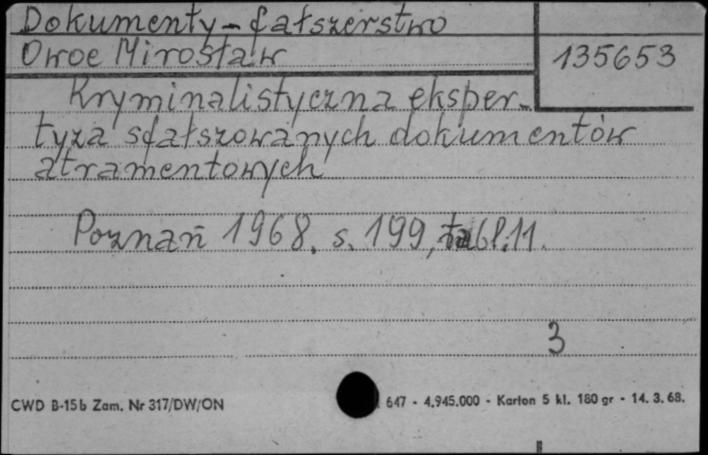 Dokumenty - fałszerstwo
Owoc Mirosław
135653
Kryminalistyczna eksper-
tyza sfałszowanych dokumentów
atramentowych
Poznań 1968. s. 199, tabl. 11.
3
CWD B-15b Zam. Nr 317/DW/ON
647 - 4.945.000 - Karton 5 kl. 180 gr - 14. 3. 68.